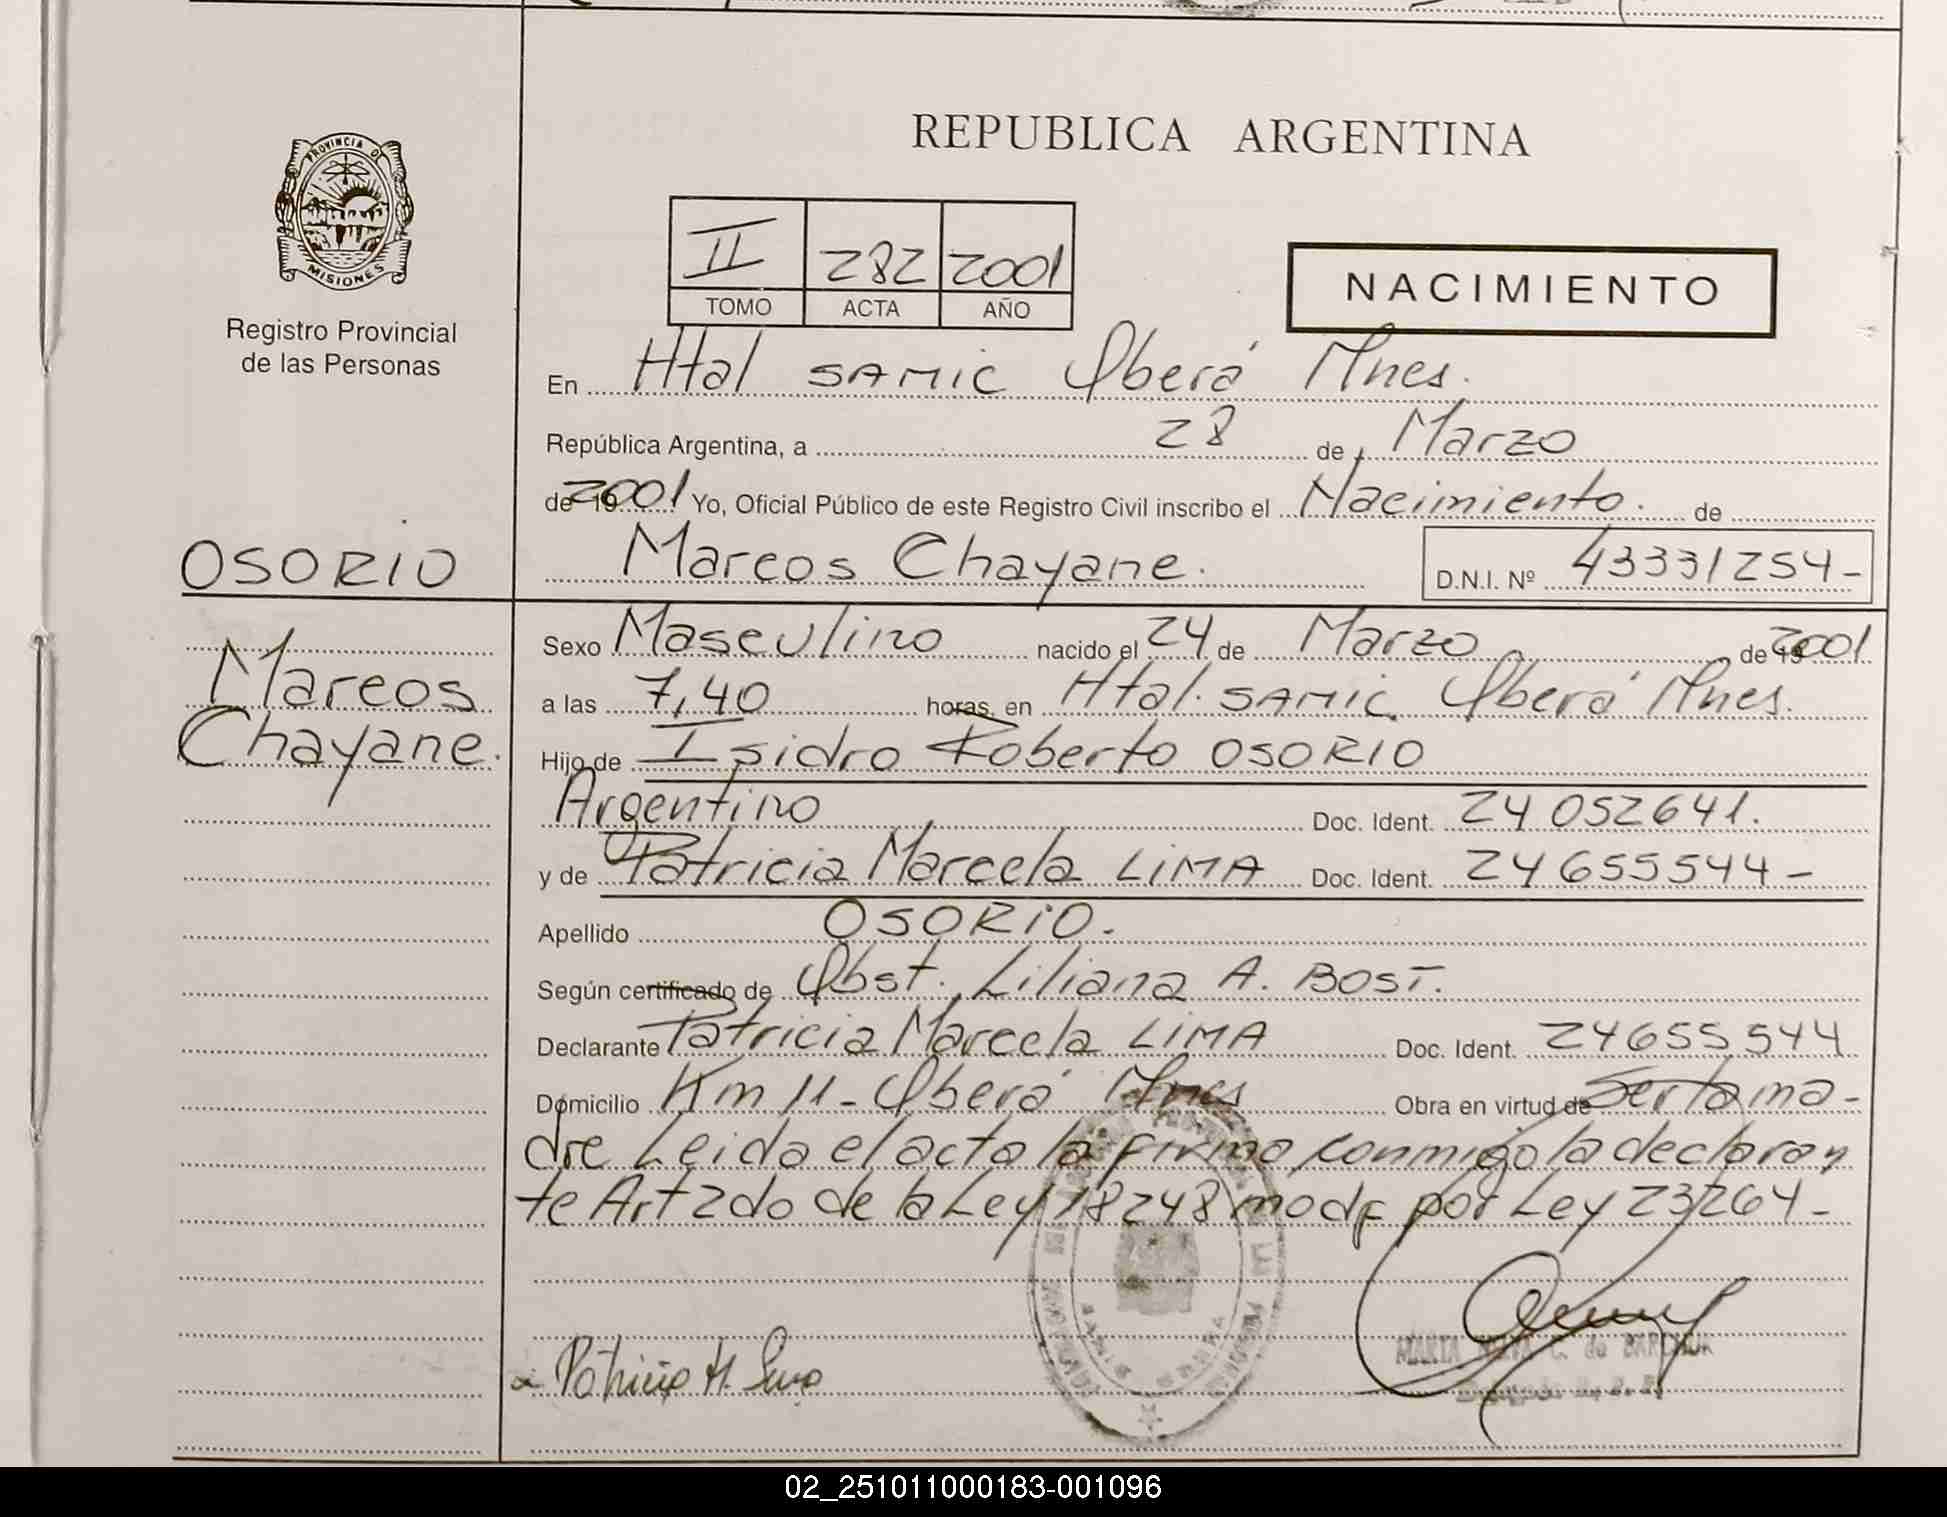 PROVINCIA D
MISIONES
Registro Provincial
de las Personas
REPUBLICA ARGENTINA
II 282 2001
TOMO ACTA AÑO
NACIMIENTO
En Htal SAMIC Oberá Mnes.
República Argentina, a 28 de Marzo
de 19 2001 Yo, Oficial Público de este Registro Civil inscribo el Nacimiento. de
OSORIO
Marcos Chayane.
D.N.I. Nº 43331254-
Marcos
Chayane.
Sexo Masculino nacido el 24 de Marzo de 19 2001
a las 7,40 horas, en Htal. SAMIC Oberá Mnes.
Hijo de Isidro Roberto OSORIO
Argentino Doc. Ident. 24 052641.
y de Patricia Marcela LIMA Doc. Ident. 24 655544-
Apellido OSORIO.
Según certificado de Obst. Liliana A. BOST.
Declarante Patricia Marcela LIMA Doc. Ident. 24655544
Domicilio Km 11- Oberá Mnes Obra en virtud de Ser la ma-
dre Leida el acta la firma conmigo la declaran
te Art 2do de la Ley 18248 modf por Ley 23264-
MARTA C. de
Patricia M. Lima
02_251011000183-001096